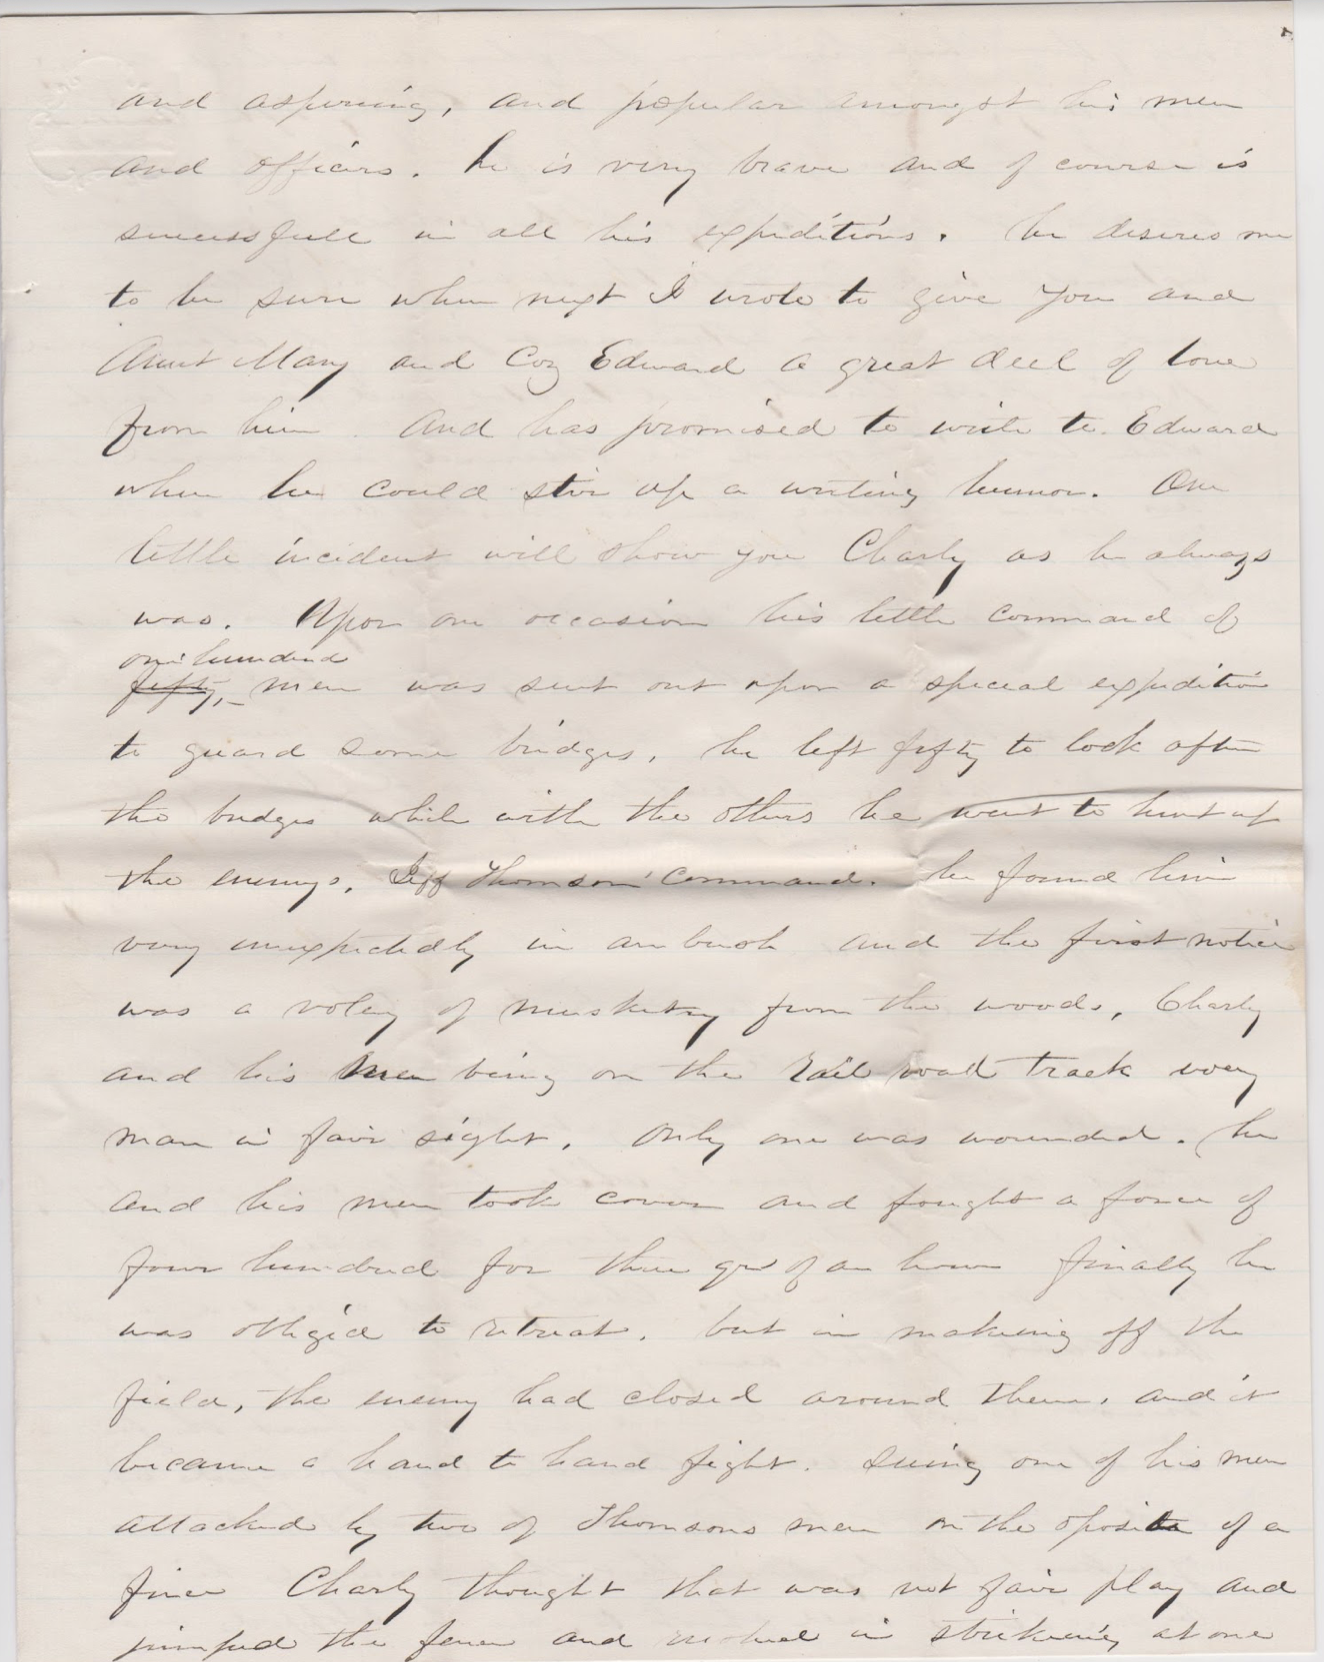 and aspiring, and popular amongst his men
and officers. he is very brave and of course is
successfull in all his expeditions. he desires me
to be sure when next I wrote to give you and
Aunt Mary and Coz Edward a great deel of love
from him. And has promised to write to Edward
when he could stir up a writing humor. One
little incident will show you Charly as he always
was. Upon one occasion his little command of
one hundred
fifty, men was sent out upon a special expedition
to guard some bridges, he left fifty to look after
the bridges while with the others he went to hunt up
the enemys, Jeff Thomson' command. he found him
very unexpectedly in ambush and the first notice
was a voley of musketry from the woods, Charly
and his men being on the rail road track every
man in fair sight. Only one was wounded. he
and his men took cover and fought a force of
four hundred for three qrs of an hour finally he
was obligéd to retreat. but in makeing off the
field, the enemy had closed around them, and it
became a hand to hand fight. Seeing one of his men
attacked by two of Thomsons men on the oposite of a
fince Charly thought that was not fair play and
jumped the fence and in strikeing at one